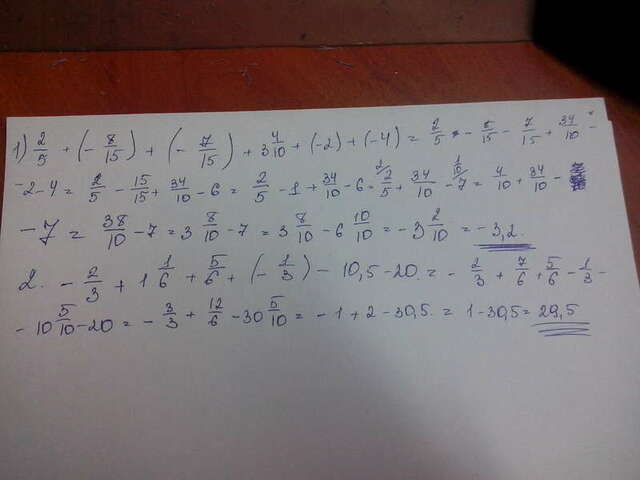 1) 2/5 + (- 8/15) + (- 7/15) + 3 4/10 + (-2) + (-4) = 2/5 - 8/15 - 7/15 + 34/10 -
-2-4 = 2/5 - 15/15 + 34/10 - 6 = 2/5 - 1 + 34/10 - 6 = 2/5 + 34/10 - 7 = 4/10 + 34/10 -
-7 = 38/10 - 7 = 3 8/10 - 7 = 3 8/10 - 6 10/10 = -3 2/10 = -3,2.
2. - 2/3 + 1 1/6 + 5/6 + (- 1/3) - 10,5-20. = - 2/3 + 7/6 + 5/6 - 1/3 -
- 10 5/10 - 20 = - 3/3 + 12/6 - 30 5/10 = - 1 + 2 - 30,5. = 1 - 30,5 = 29,5